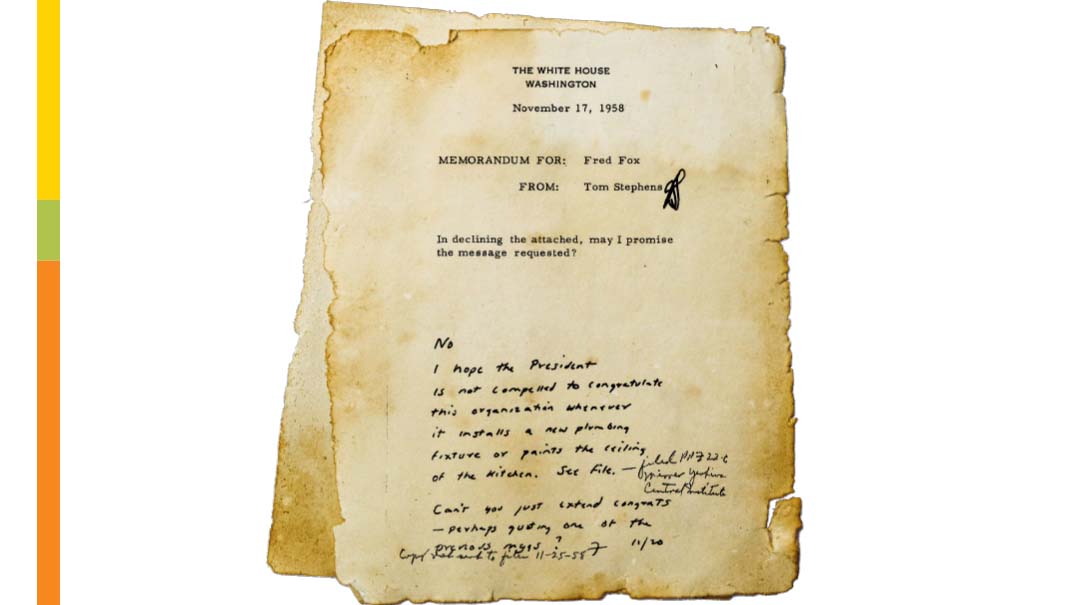 THE WHITE HOUSE
WASHINGTON
November 17, 1958
MEMORANDUM FOR: Fred Fox
FROM: Tom Stephens
In declining the attached, may I promise
the message requested?
No
I hope the President
is not compelled to congratulate
this organization whenever
it installs a new plumbing
fixture or paints the ceiling
of the kitchen. See File. —
filed PPF 22-C
Central Institute
Can't you just extend congrats
— perhaps quoting one of the
previous msgs?
11/20
Copy sent to files 11-25-58